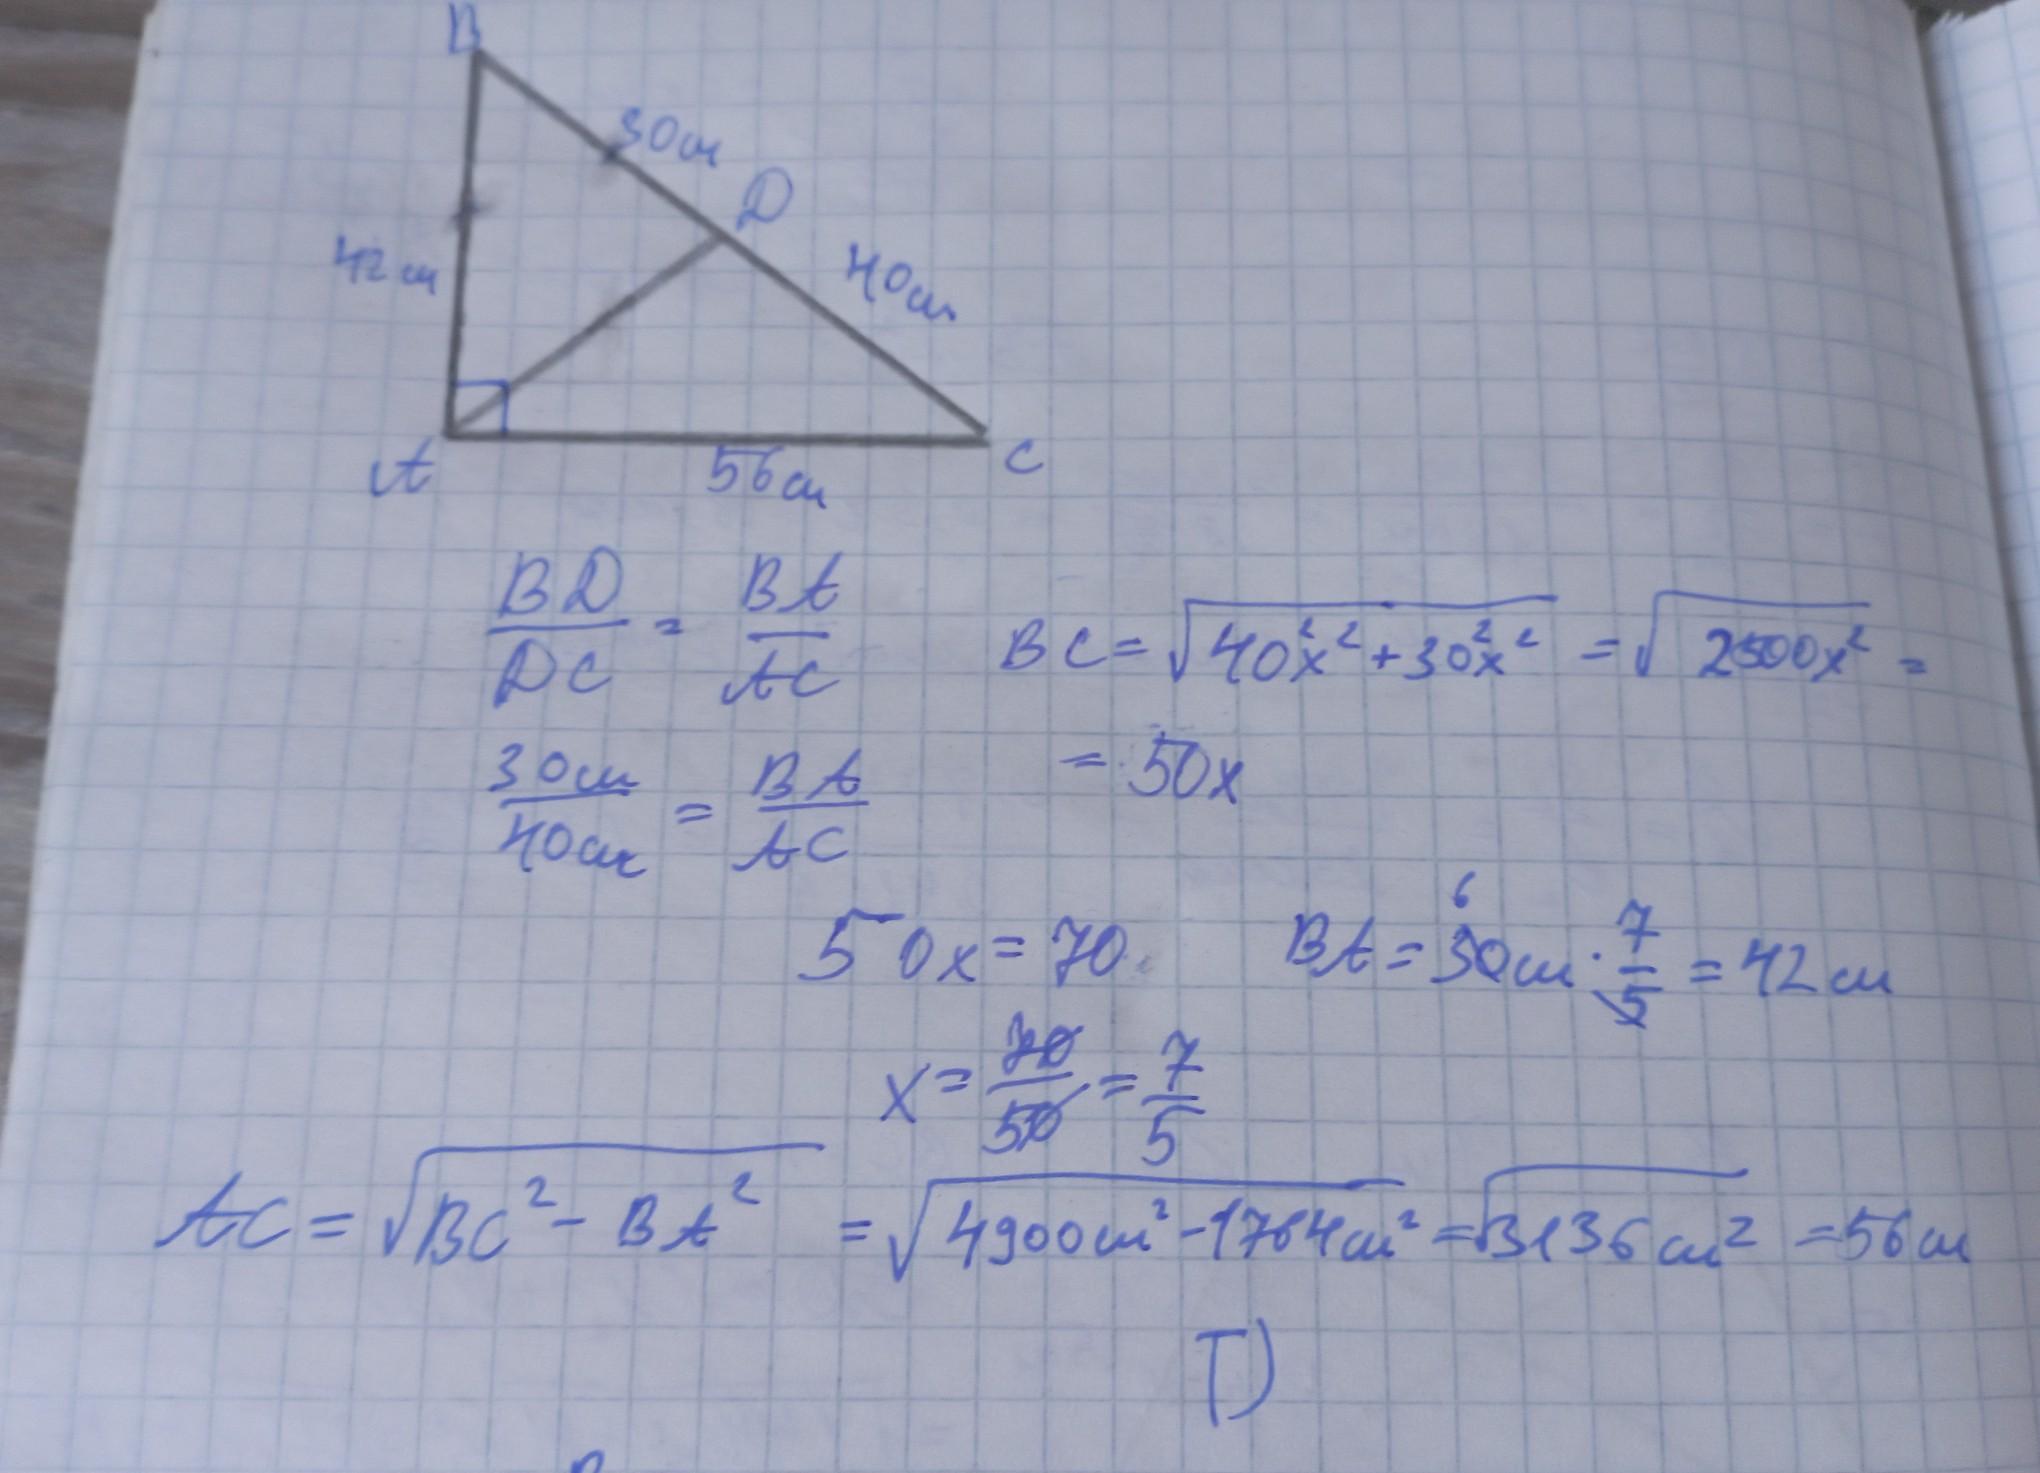 B
30см
D
42см
40см
A
56см
C
BD/DC = BA/AC
BC = √(40²x² + 30²x²) = √(2500x²) =
= 50x
30см/40см = BA/AC
50x = 70
BA = 30см · 7/5 = 42см
6
x = 70/50 = 7/5
AC = √(BC² - BA²) = √(4900см² - 1764см²) = √(3136см²) = 56см
Г)